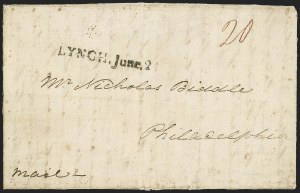 20
LYNCH. June. 2
Mr Nicholas Biddle
Philadelphia
Mail